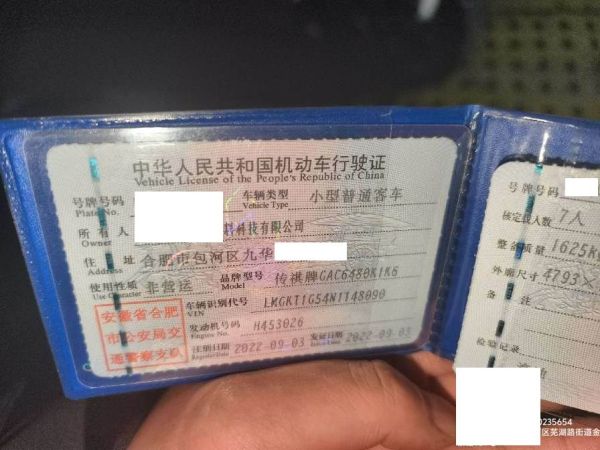 中华人民共和国机动车行驶证
Vehicle License of the People's Republic of China
号牌号码
Plate No.
车辆类型
Vehicle Type
小型普通客车
所有人
Owner
科技有限公司
住址
Address
合肥市包河区九华
使用性质
Use Character
非营运
品牌型号
Model
传祺牌GAC6480K1K6
安徽省合肥
市公安局交
通警察支队
车辆识别代号
VIN
LMGKT1G54N1148090
发动机号码
Engine No.
H453026
注册日期
Register Date
2022-09-03
发证日期
Issue Date
2022-09-03
号牌号码
核定载人数
7人
整备质量
1625K
外廓尺寸
4793×
备注
检验记录
0235654
区芜湖路街道金